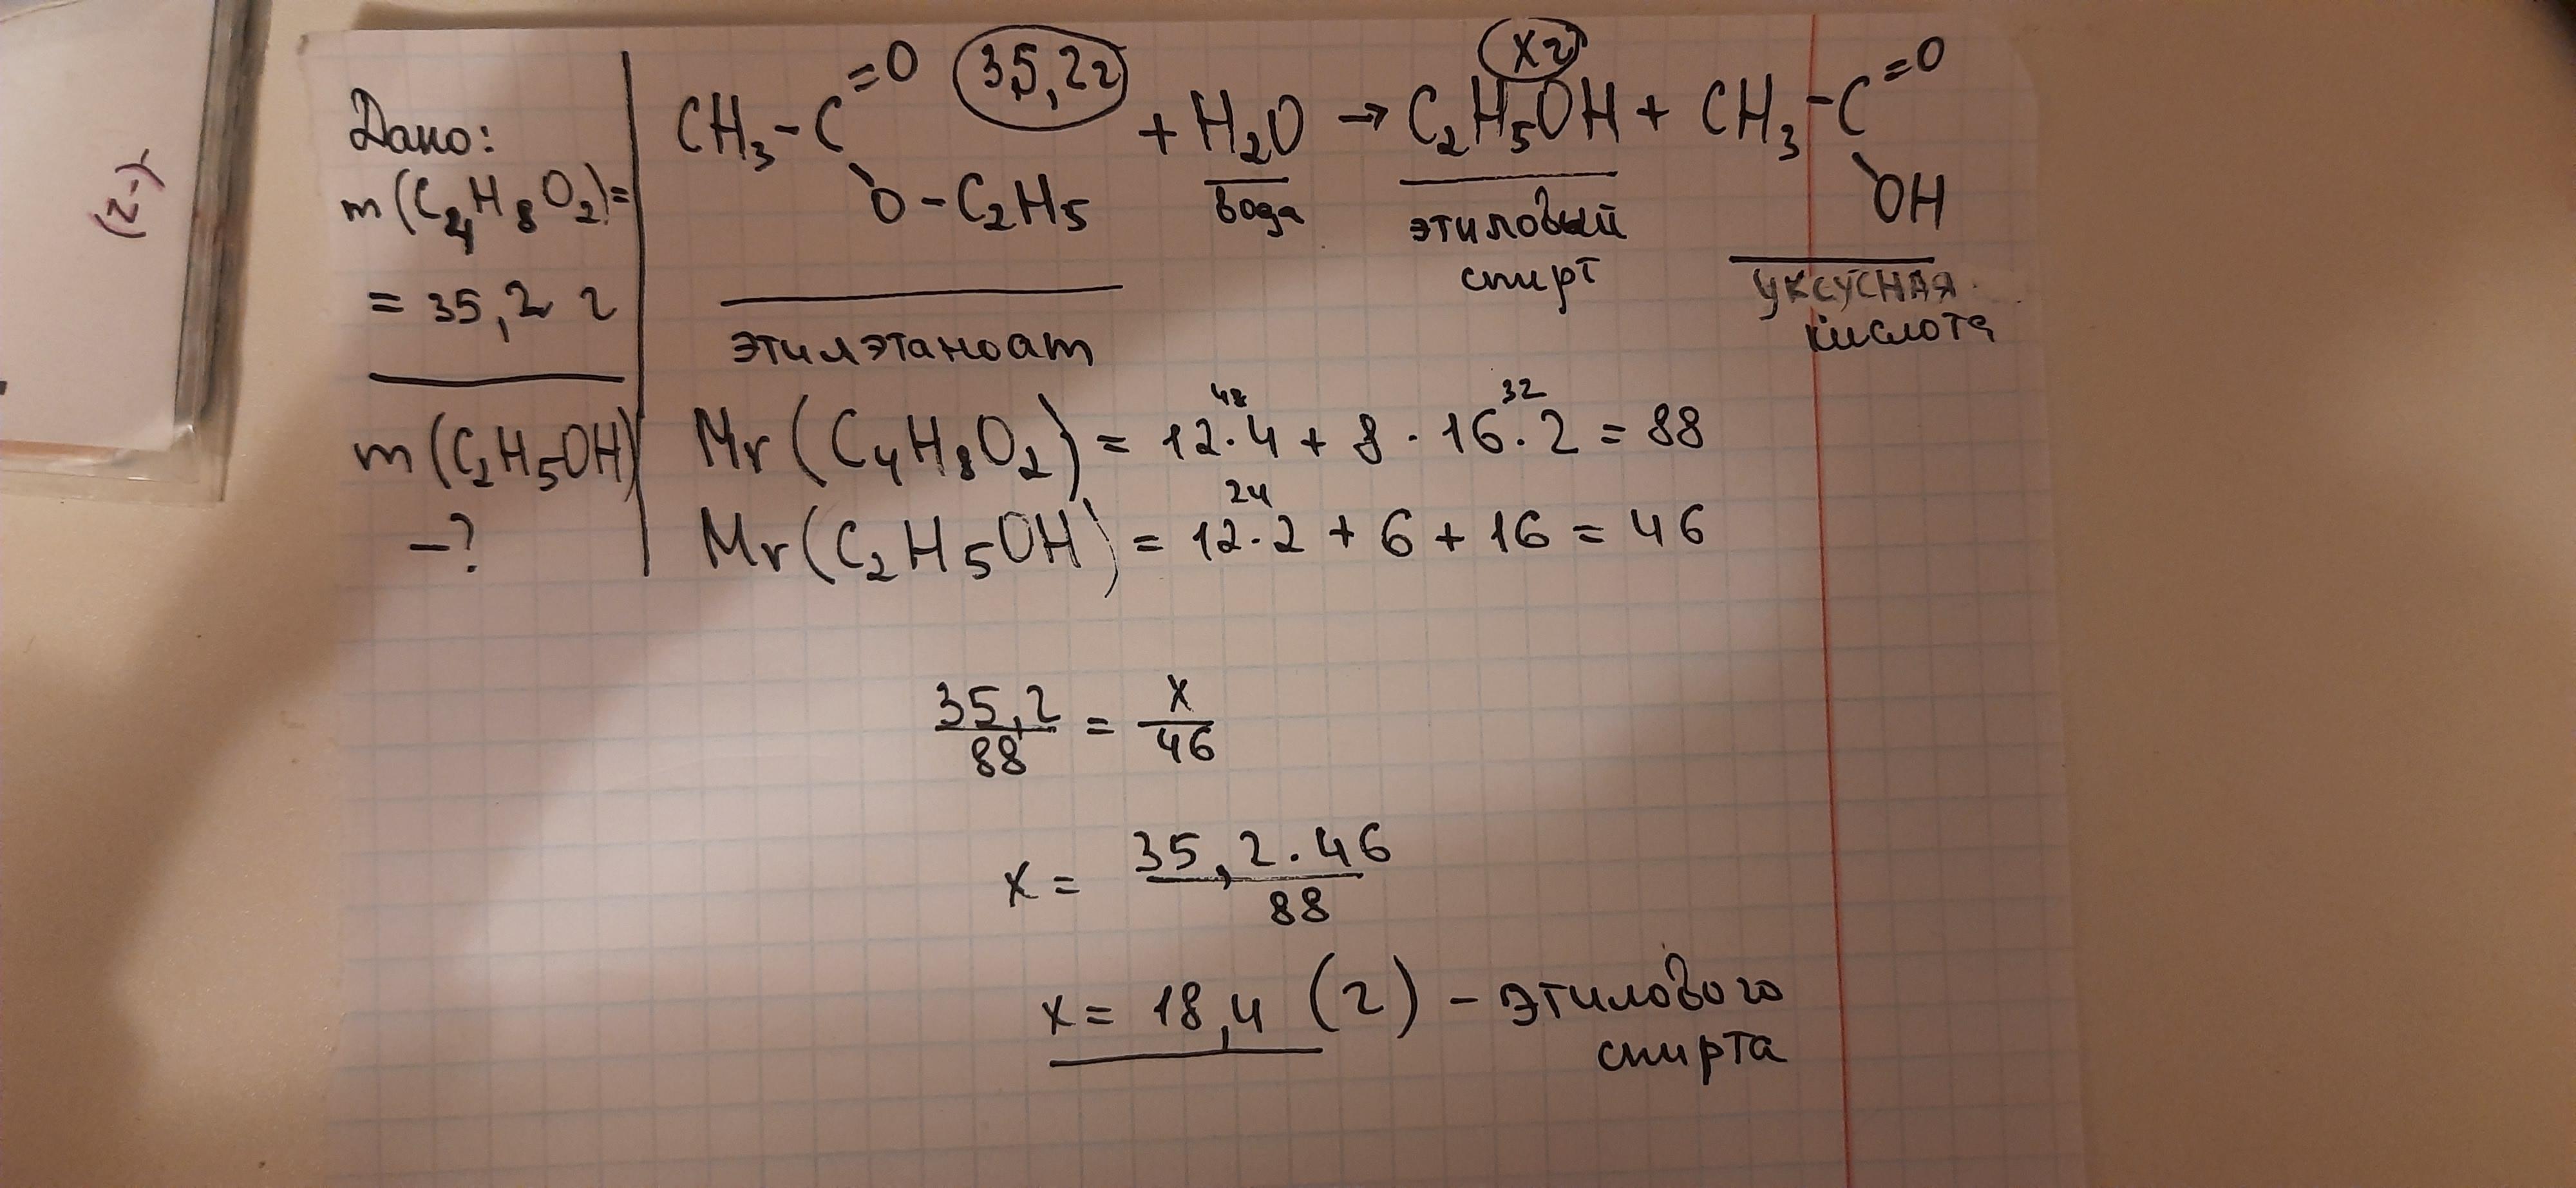 Дано:
m(C₄H₈O₂)=
= 35,2 г
m(C₂H₅OH)
-?
35,2г
xг
CH₃-C=O + H₂O → C₂H₅OH + CH₃-C=O
O-C₂H₅
OH
этилэтаноат
вода
этиловый
спирт
уксусная
кислота
48 32
Mr(C₄H₈O₂) = 12·4 + 8 · 16·2 = 88
24
Mr(C₂H₅OH) = 12·2 + 6 + 16 = 46
35,2/88 = x/46
x = 35,2·46/88
x = 18,4 (г) - этилового
спирта